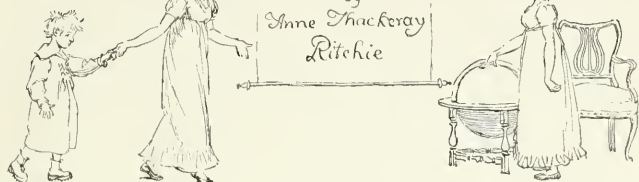 by
Anne Thackeray
Ritchie